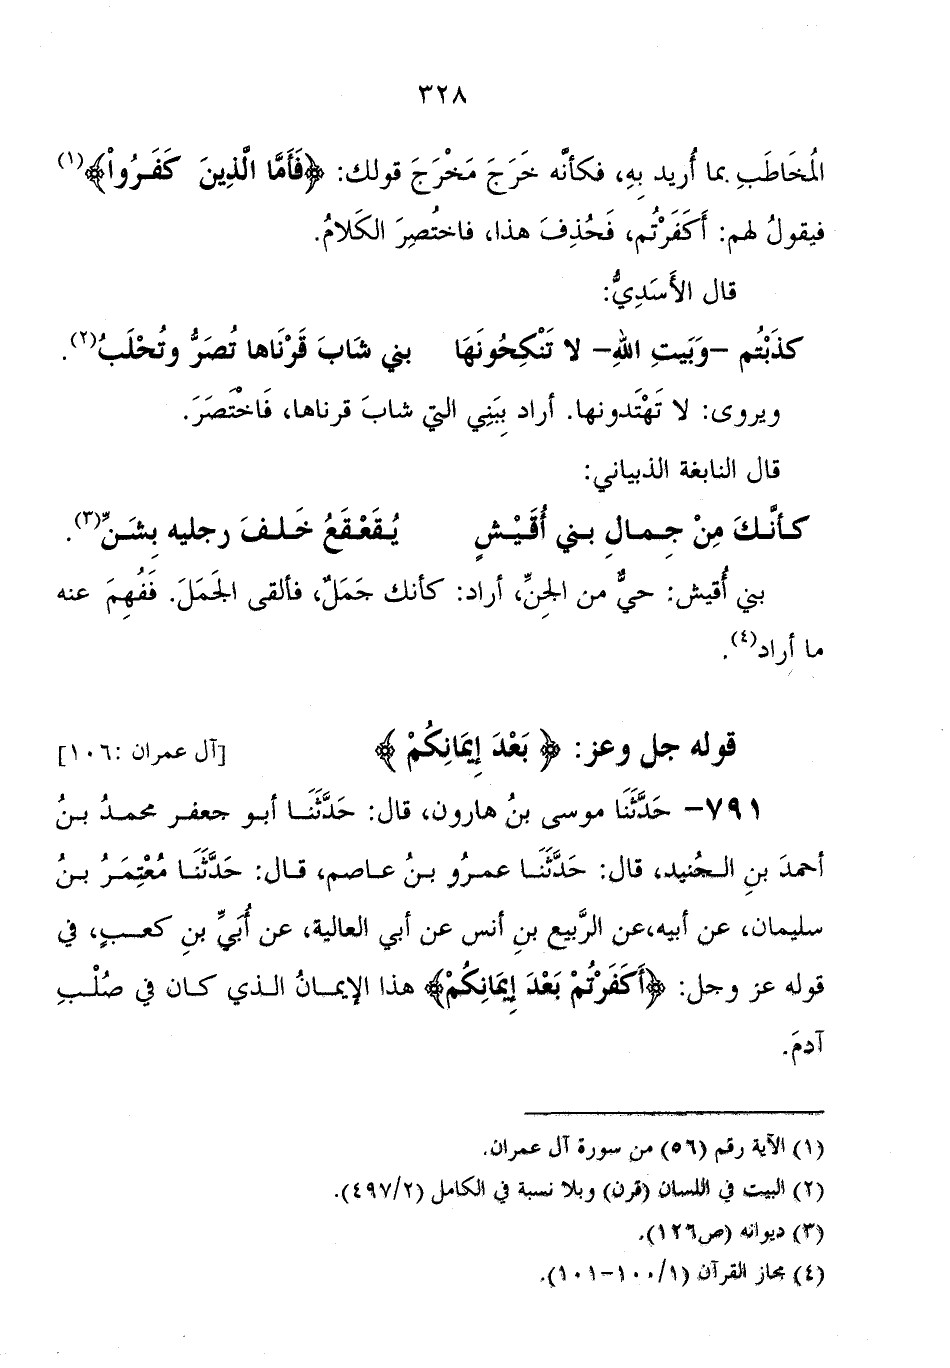 ٣٢٨
المُخَاطَبِ بما أُريد بِهِ، فكأنَّه خَرَجَ مَخْرَجَ قولك: ﴿فَأَمَّا الَّذِينَ كَفَرُواْ﴾(١)
فيقولُ لهم: أَكَفَرْتُم، فَحُذِفَ هذا، فاختُصِرَ الكَلامُ.
قال الأَسَدِيُّ:
كذَبْتُم –وَبَيتِ اللهِ– لا تَنْكِحُونَهَا بني شابَ قَرْنَاها تُصَرُّ وتُحْلَبُ(٢).
ويروى: لا تَهْتَدونها. أراد بِبَنِي التي شابَ قرناها، فَاخْتَصَرَ.
قال النابغة الذبياني:
كـأنَّـكَ مِنْ جِـمـالِ بـني أُقَـيْـشٍ يُـقَـعْـقَعُ خَـلـفَ رجليه بِشَـنٍّ(٣).
بني أُقيش: حيٌّ من الجِنِّ، أراد: كأنك جَمَلٌ، فألقى الجَمَلَ. فَفُهِمَ عنه
ما أراد(٤).
قوله جل وعز: ﴿ بَعْدَ إِيمَانِكُمْ ﴾ [آل عمران :١٠٦]
٧٩١– حَدَّثَنَا موسى بنُ هارون، قال: حَدَّثَنَـا أبـو جعفـر محمـدُ بـنُ
أحمدَ بنِ الـجُنيد، قال: حَدَّثَنَـا عمـرُو بـنُ عـاصم، قـال: حَدَّثَنَـا مُعْتِمَرُ بـنُ
سليمان، عن أبيه،عن الرَّبيع بنِ أنس عن أبي العالية، عن أُبَيِّ بنِ كعـبٍ، في
قوله عز وجل: ﴿أَكَفَرْتُمْ بَعْدَ إِيمَانِكُمْ﴾ هذا الإيمـانُ الـذي كـان في صُلْـبِ
آدمَ.
(١) الآية رقم (٥٦) من سورة آل عمران.
(٢) البيت في اللسان (قرن) وبلا نسبة في الكامل (٤٩٧/٢).
(٣) ديوانه (ص١٢٦).
(٤) مجاز القرآن (١٠٠/١–١٠١).